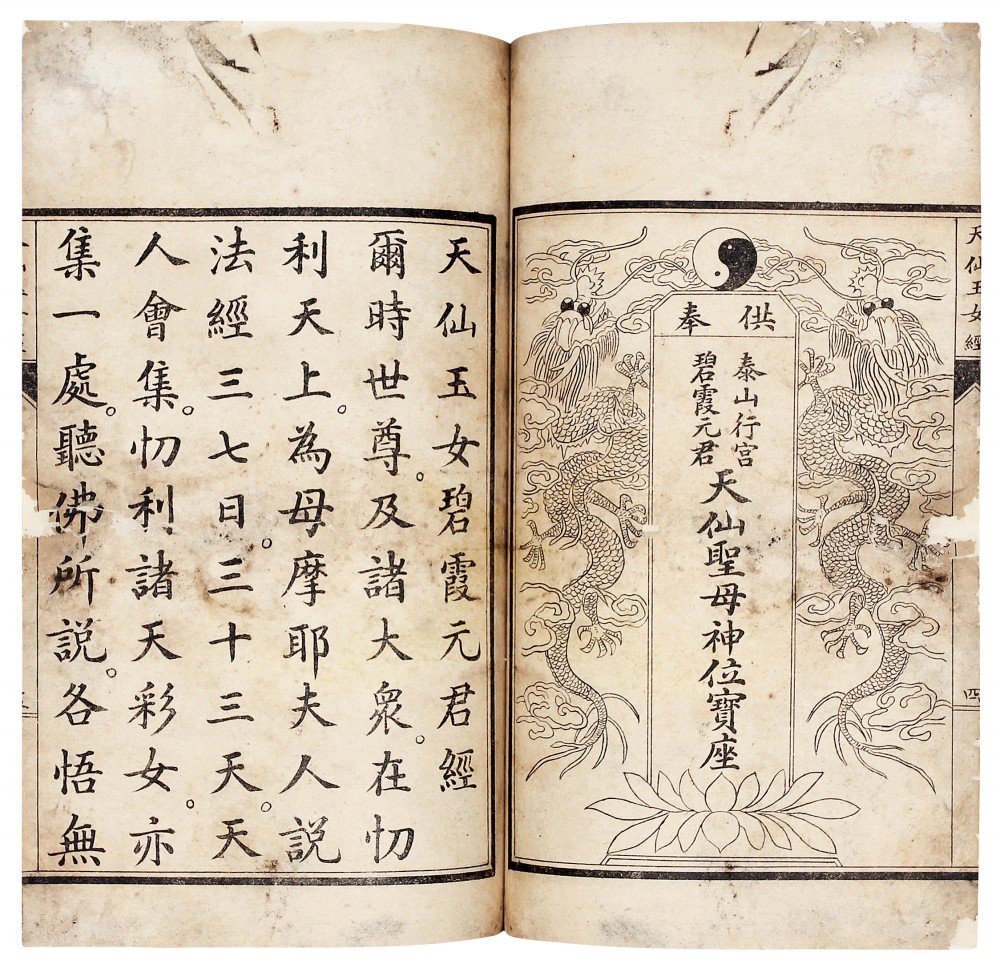 天仙玉女經
四
供奉
泰山行宮
碧霞元君
天仙聖母神位寶座
天仙玉女碧霞元君經
爾時世尊。及諸大衆。在忉
利天上。為母摩耶夫人説
法經三七日。三十三天。天
人會集。忉利諸天彩女。亦
集一處。聽佛所説。各悟無